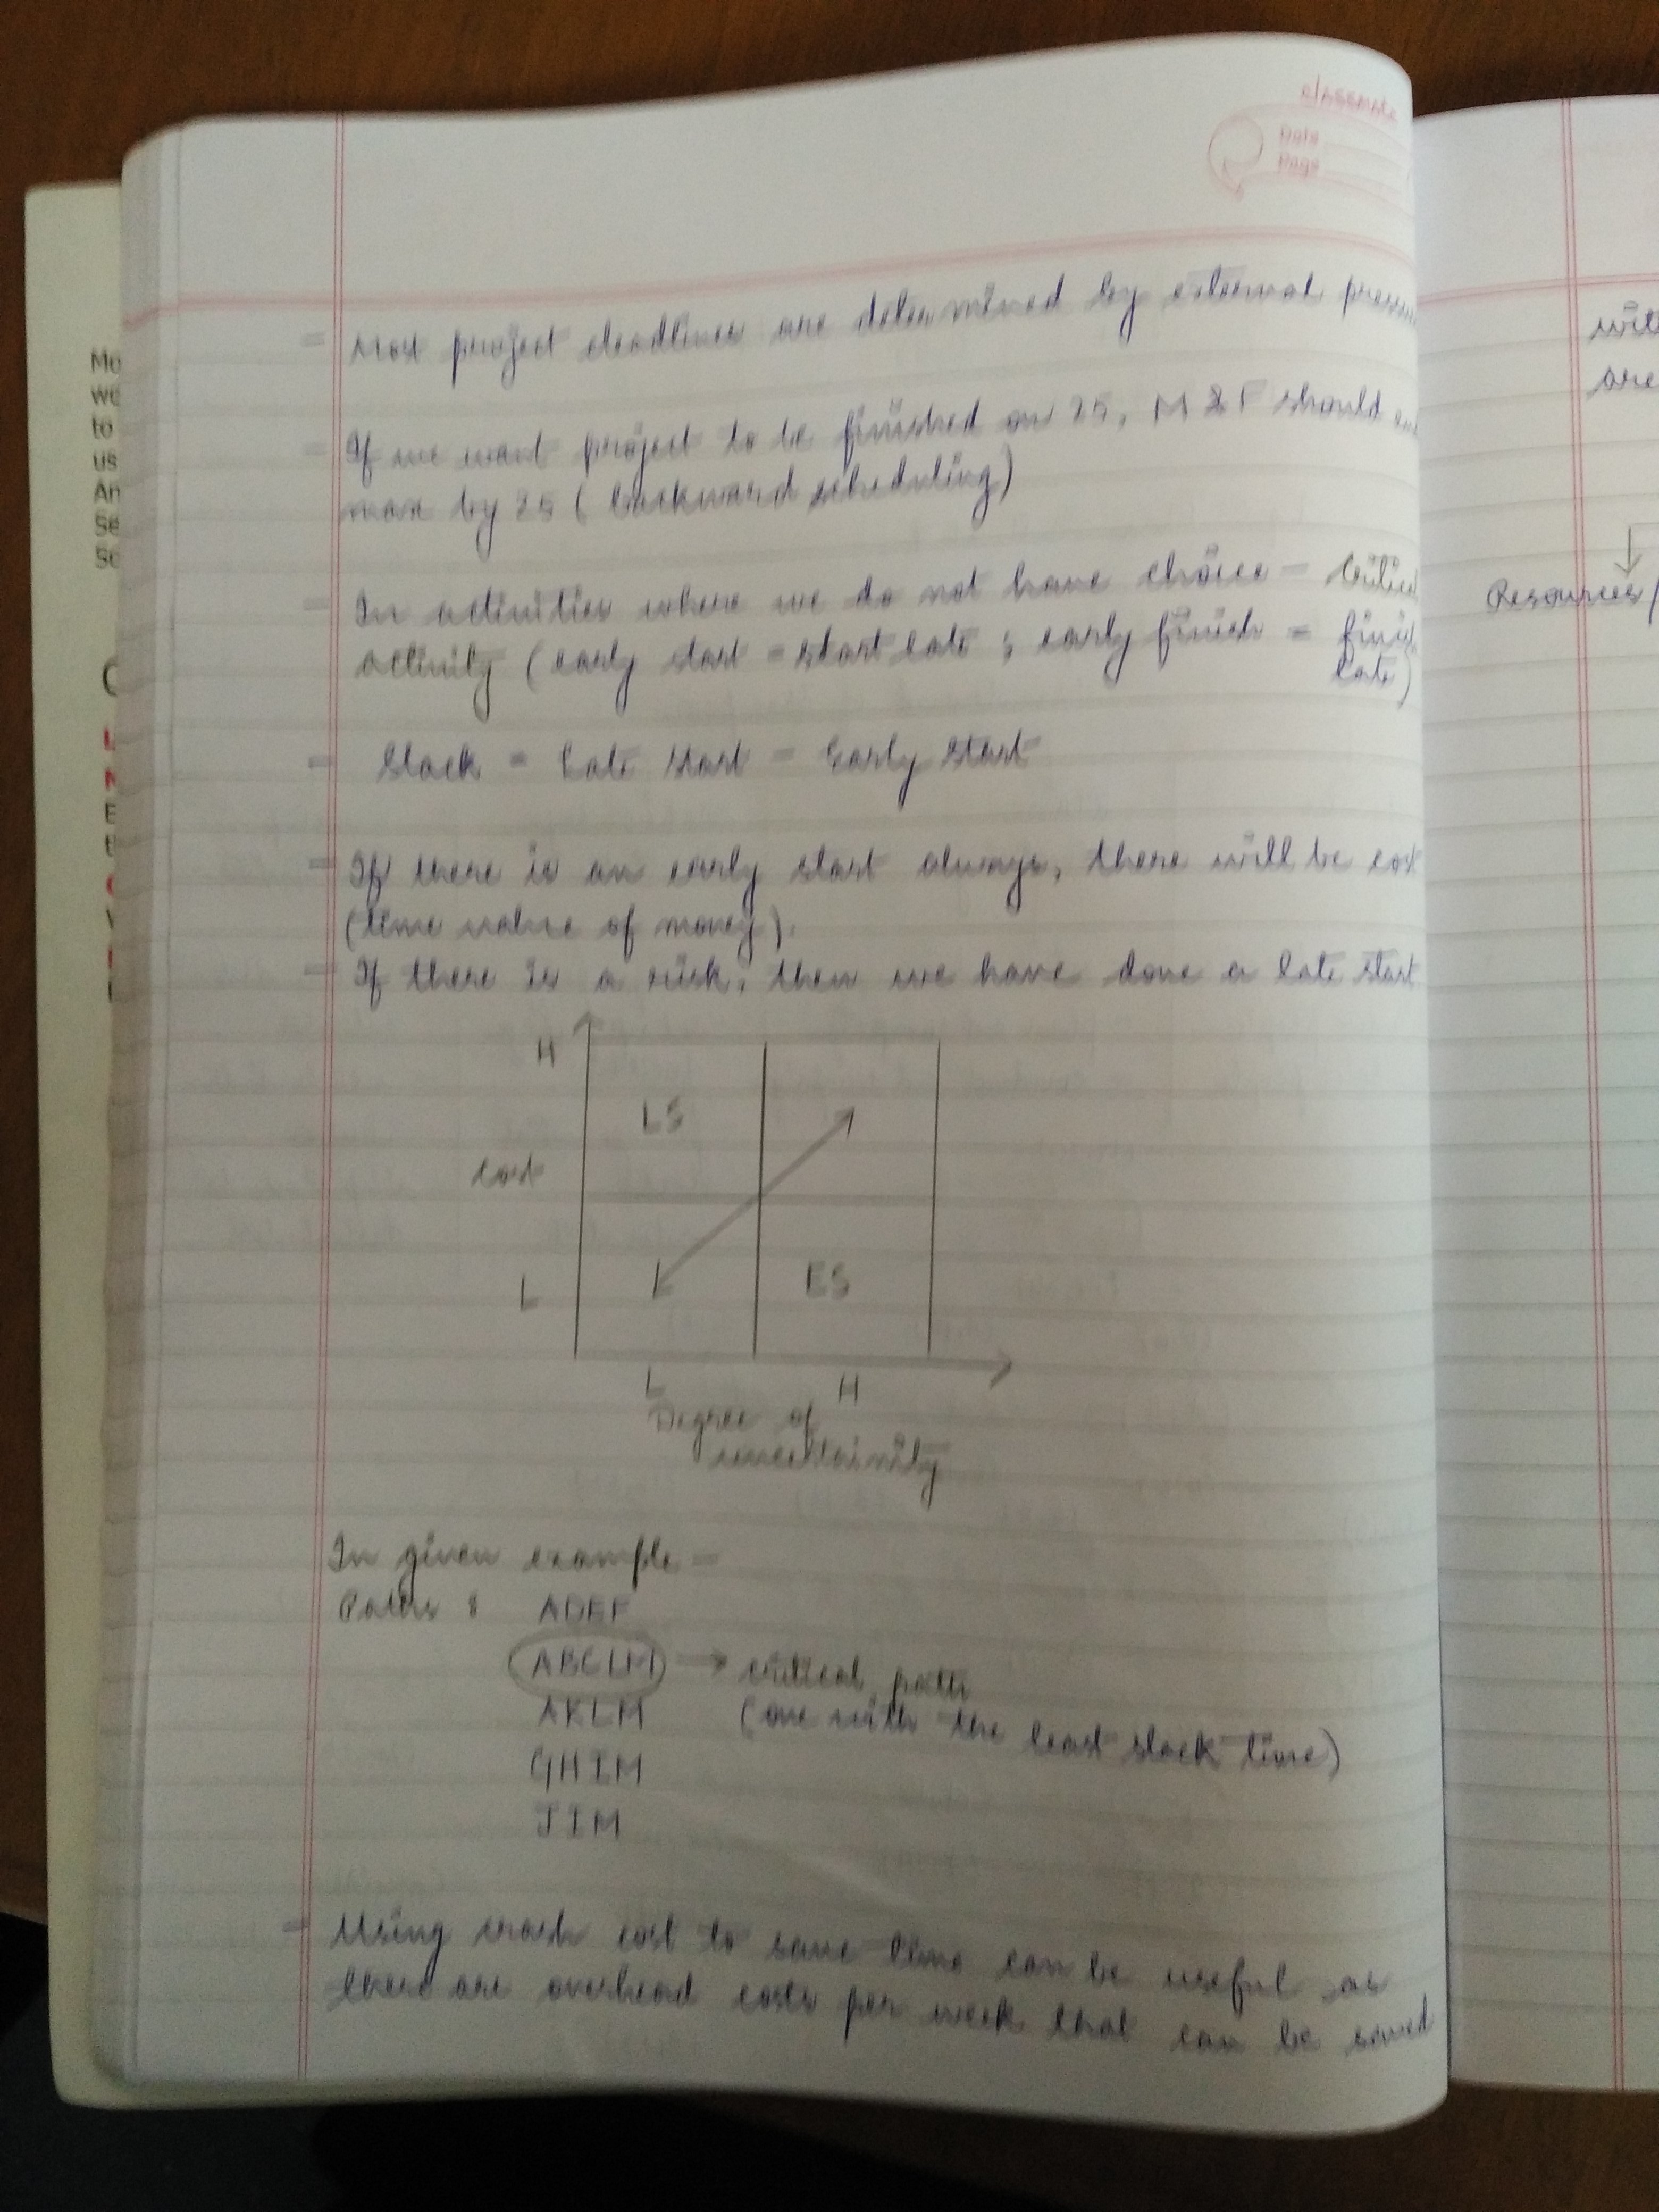 classmate
Date
Page
- Most project deadlines are determined by external
- If we want project to be finished on 25, M & F should
max by 25 (backward scheduling)
- In activities where we do not have choice -
activity (early start = start late ; early finish =
late)
- Slack = Late start - Early start
- If there is an early start always, there will be cost
(time value of money).
- If there is a risk, then we have done a late start.
H
LS
Cost
L
ES
L H
Degree of
uncertainity
In given example -
Paths : ADEF
ABCLM → critical path
AKLM (one with the least slack time)
GHIM
JIM
- Using crash cost to save time can be useful as
there are overhead costs per week that can be saved
are
Resources
Mo
we
to
us
An
Se
Se